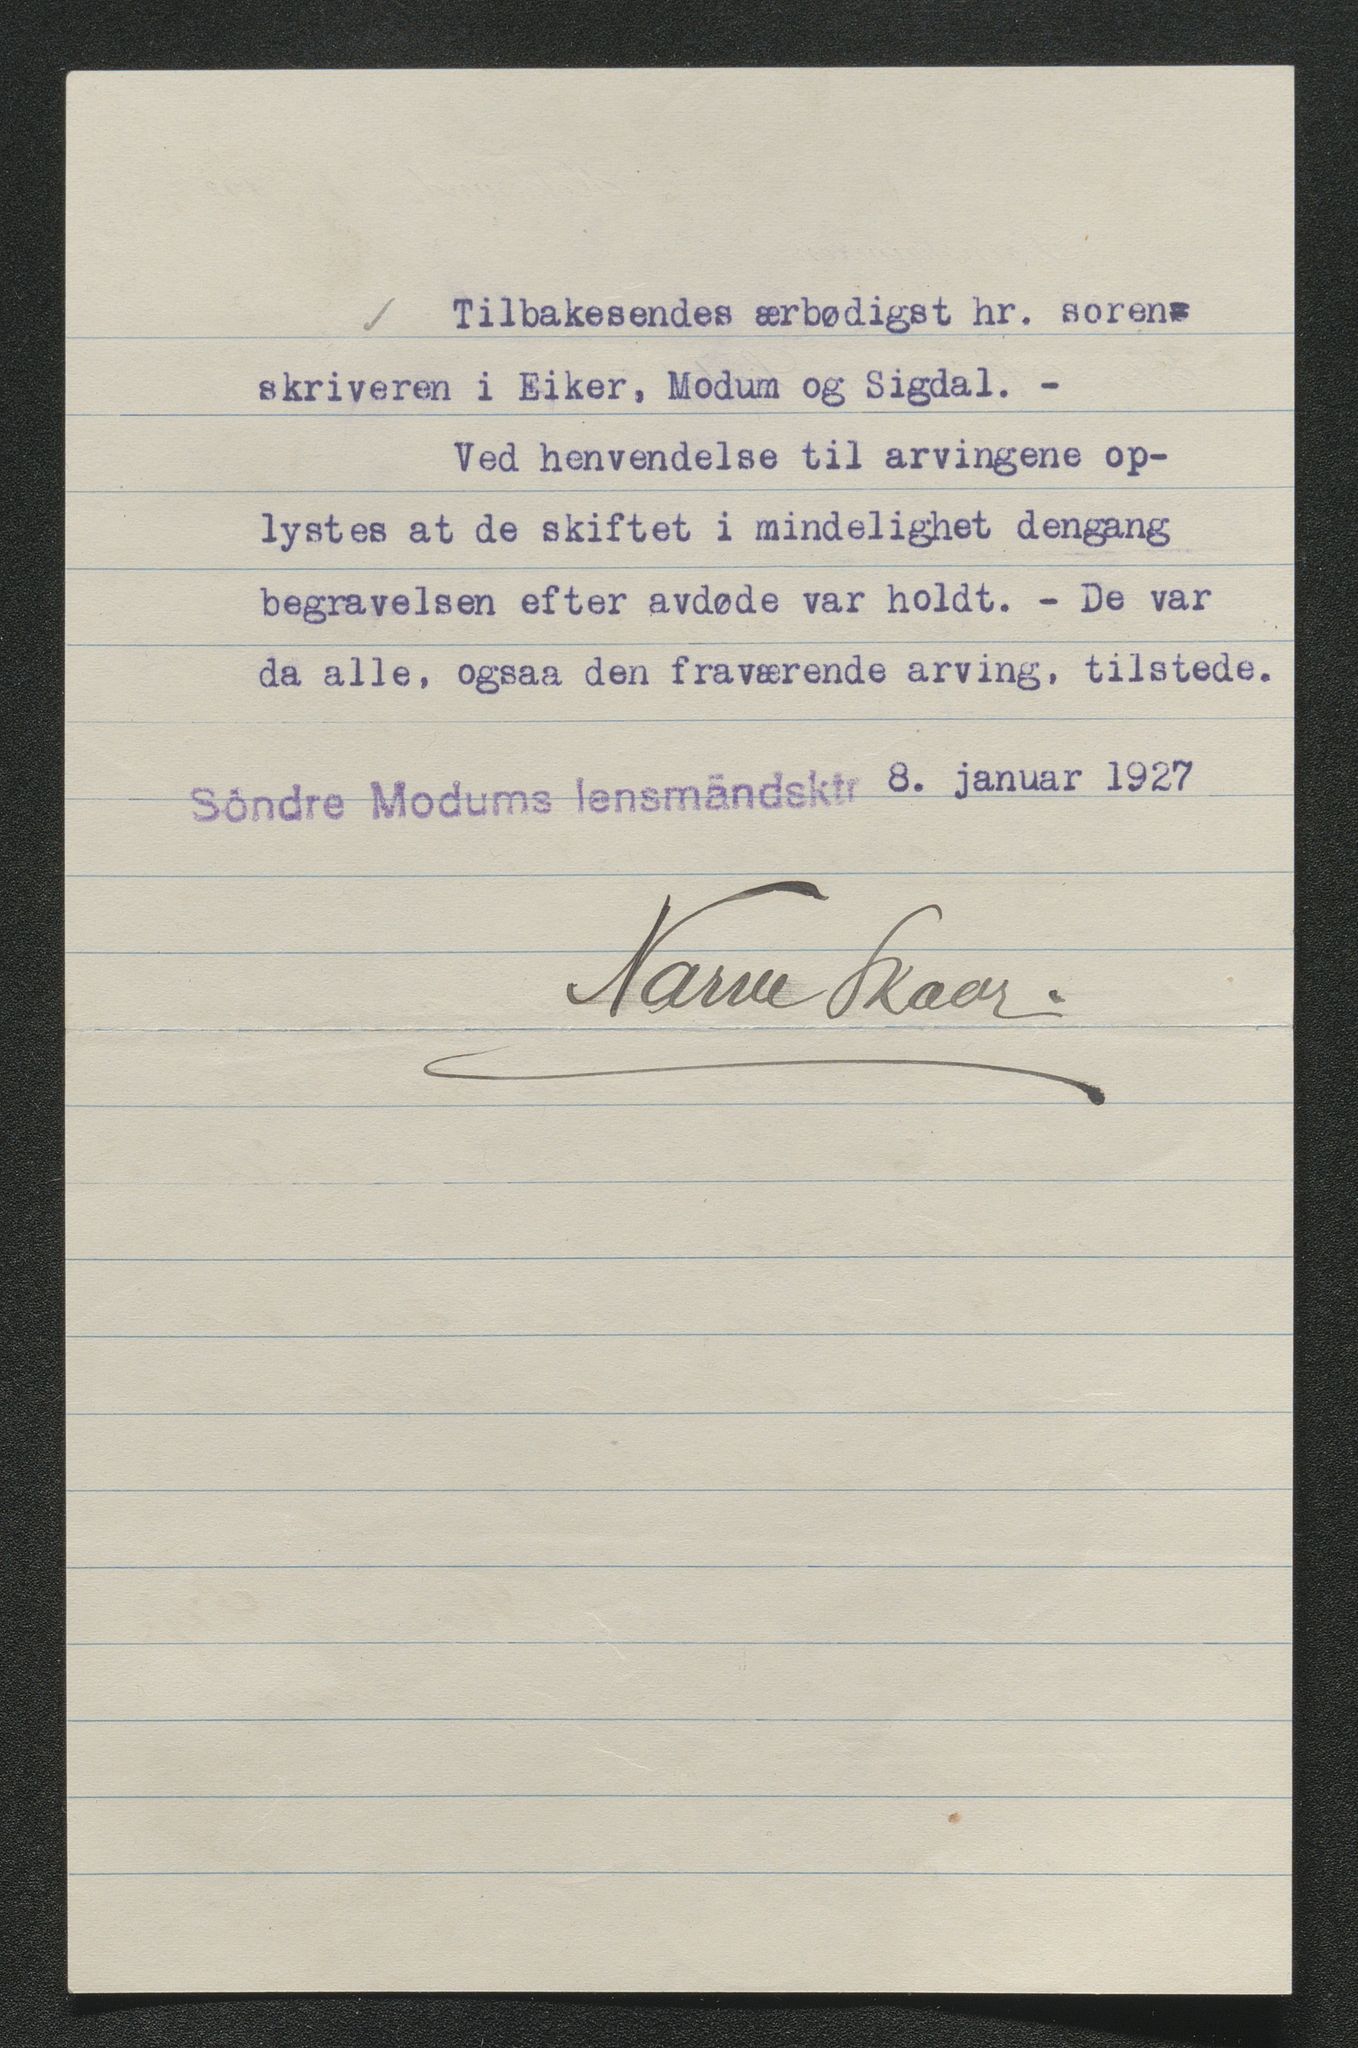 Tilbakesendes ærbødigst hr. soren-
skriveren i Eiker, Modum og Sigdal. -
Ved henvendelse til arvingene op-
lystes at de skiftet i mindelighet dengang
begravelsen efter avdøde var holdt. - De var
da alle, ogsaa den fraværende arving, tilstede.
Söndre Modums lensmändsktr 8. januar 1927
Narve Skaar.